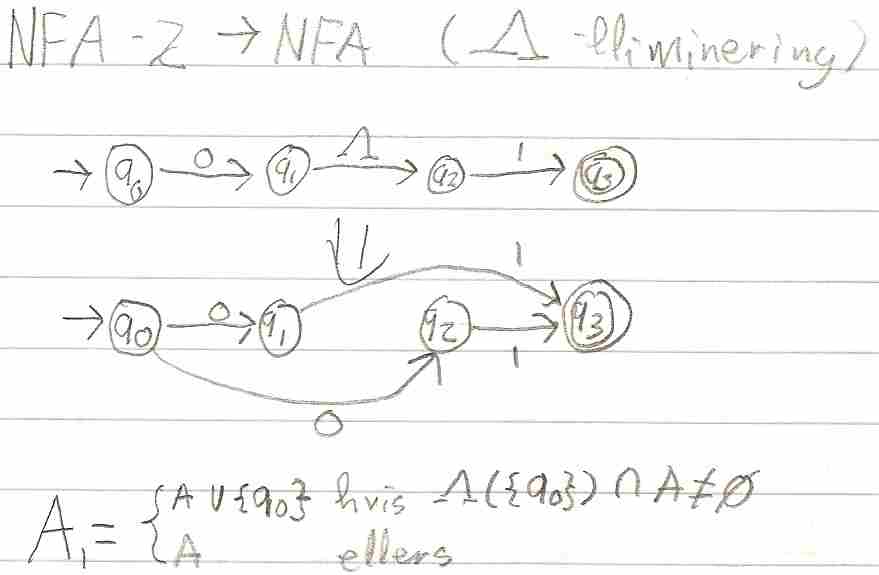 NFA-Z → NFA (Λ-eliminering)
→ q0 0 → q1 Λ → q2 1 → q3
⇓ 1
→ q0 0 → q1 q2 → q3
1
0
A1 = { A ∪ {q0} hvis Λ({q0}) ∩ A ≠ ∅
A ellers